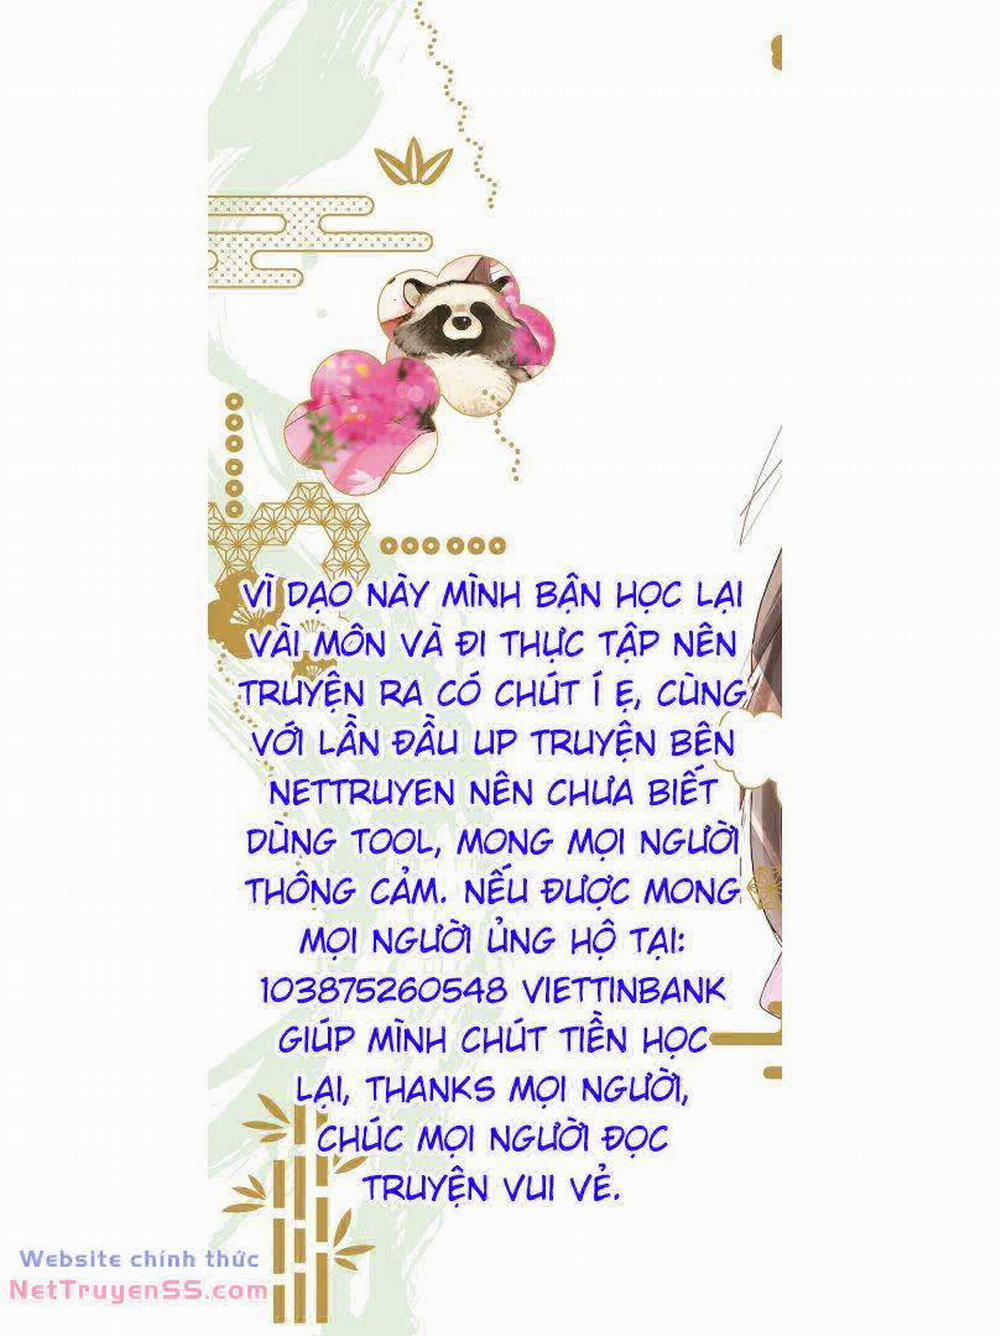 VÌ DẠO NÀY MÌNH BẬN HỌC LẠI
VÀI MÔN VÀ ĐI THỰC TẬP NÊN
TRUYỆN RA CÓ CHÚT Í Ẹ, CÙNG
VỚI LẦN ĐẦU UP TRUYỆN BÊN
NETTRUYEN NÊN CHƯA BIẾT
DÙNG TOOL, MONG MỌI NGƯỜI
THÔNG CẢM. NẾU ĐƯỢC MONG
MỌI NGƯỜI ỦNG HỘ TẠI:
103875260548 VIETTINBANK
GIÚP MÌNH CHÚT TIỀN HỌC
LẠI, THANKS MỌI NGƯỜI,
CHÚC MỌI NGƯỜI ĐỌC
TRUYỆN VUI VẺ.
Website chính thức
NetTruyenSS.com